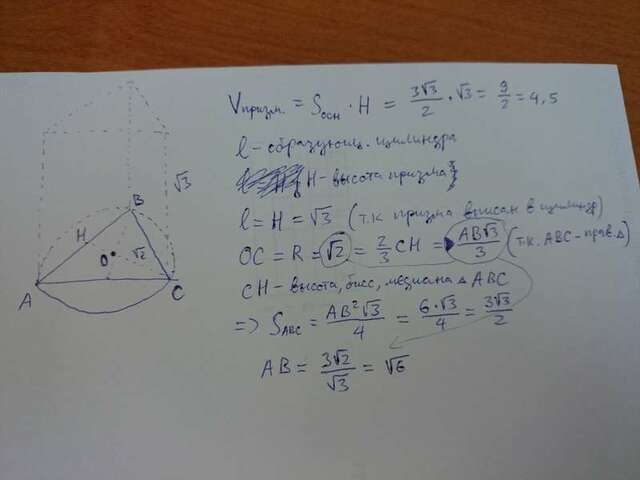 Vпризм. = Sосн · H = 3√3/2 · √3 = 9/2 = 4,5
l - образующ. цилиндра
H - высота призма
l = H = √3 (т.к призма вписан в цилиндр)
OC = R = √2 = 2/3 CH = AB√3/3 (т.к. ABC - прав. Δ)
CH - высота, бисс, медиана Δ ABC
=> SABC = AB²√3/4 = 6·√3/4 = 3√3/2
AB = 3√2/√3 = √6
√3
B
H
O
√2
A
C